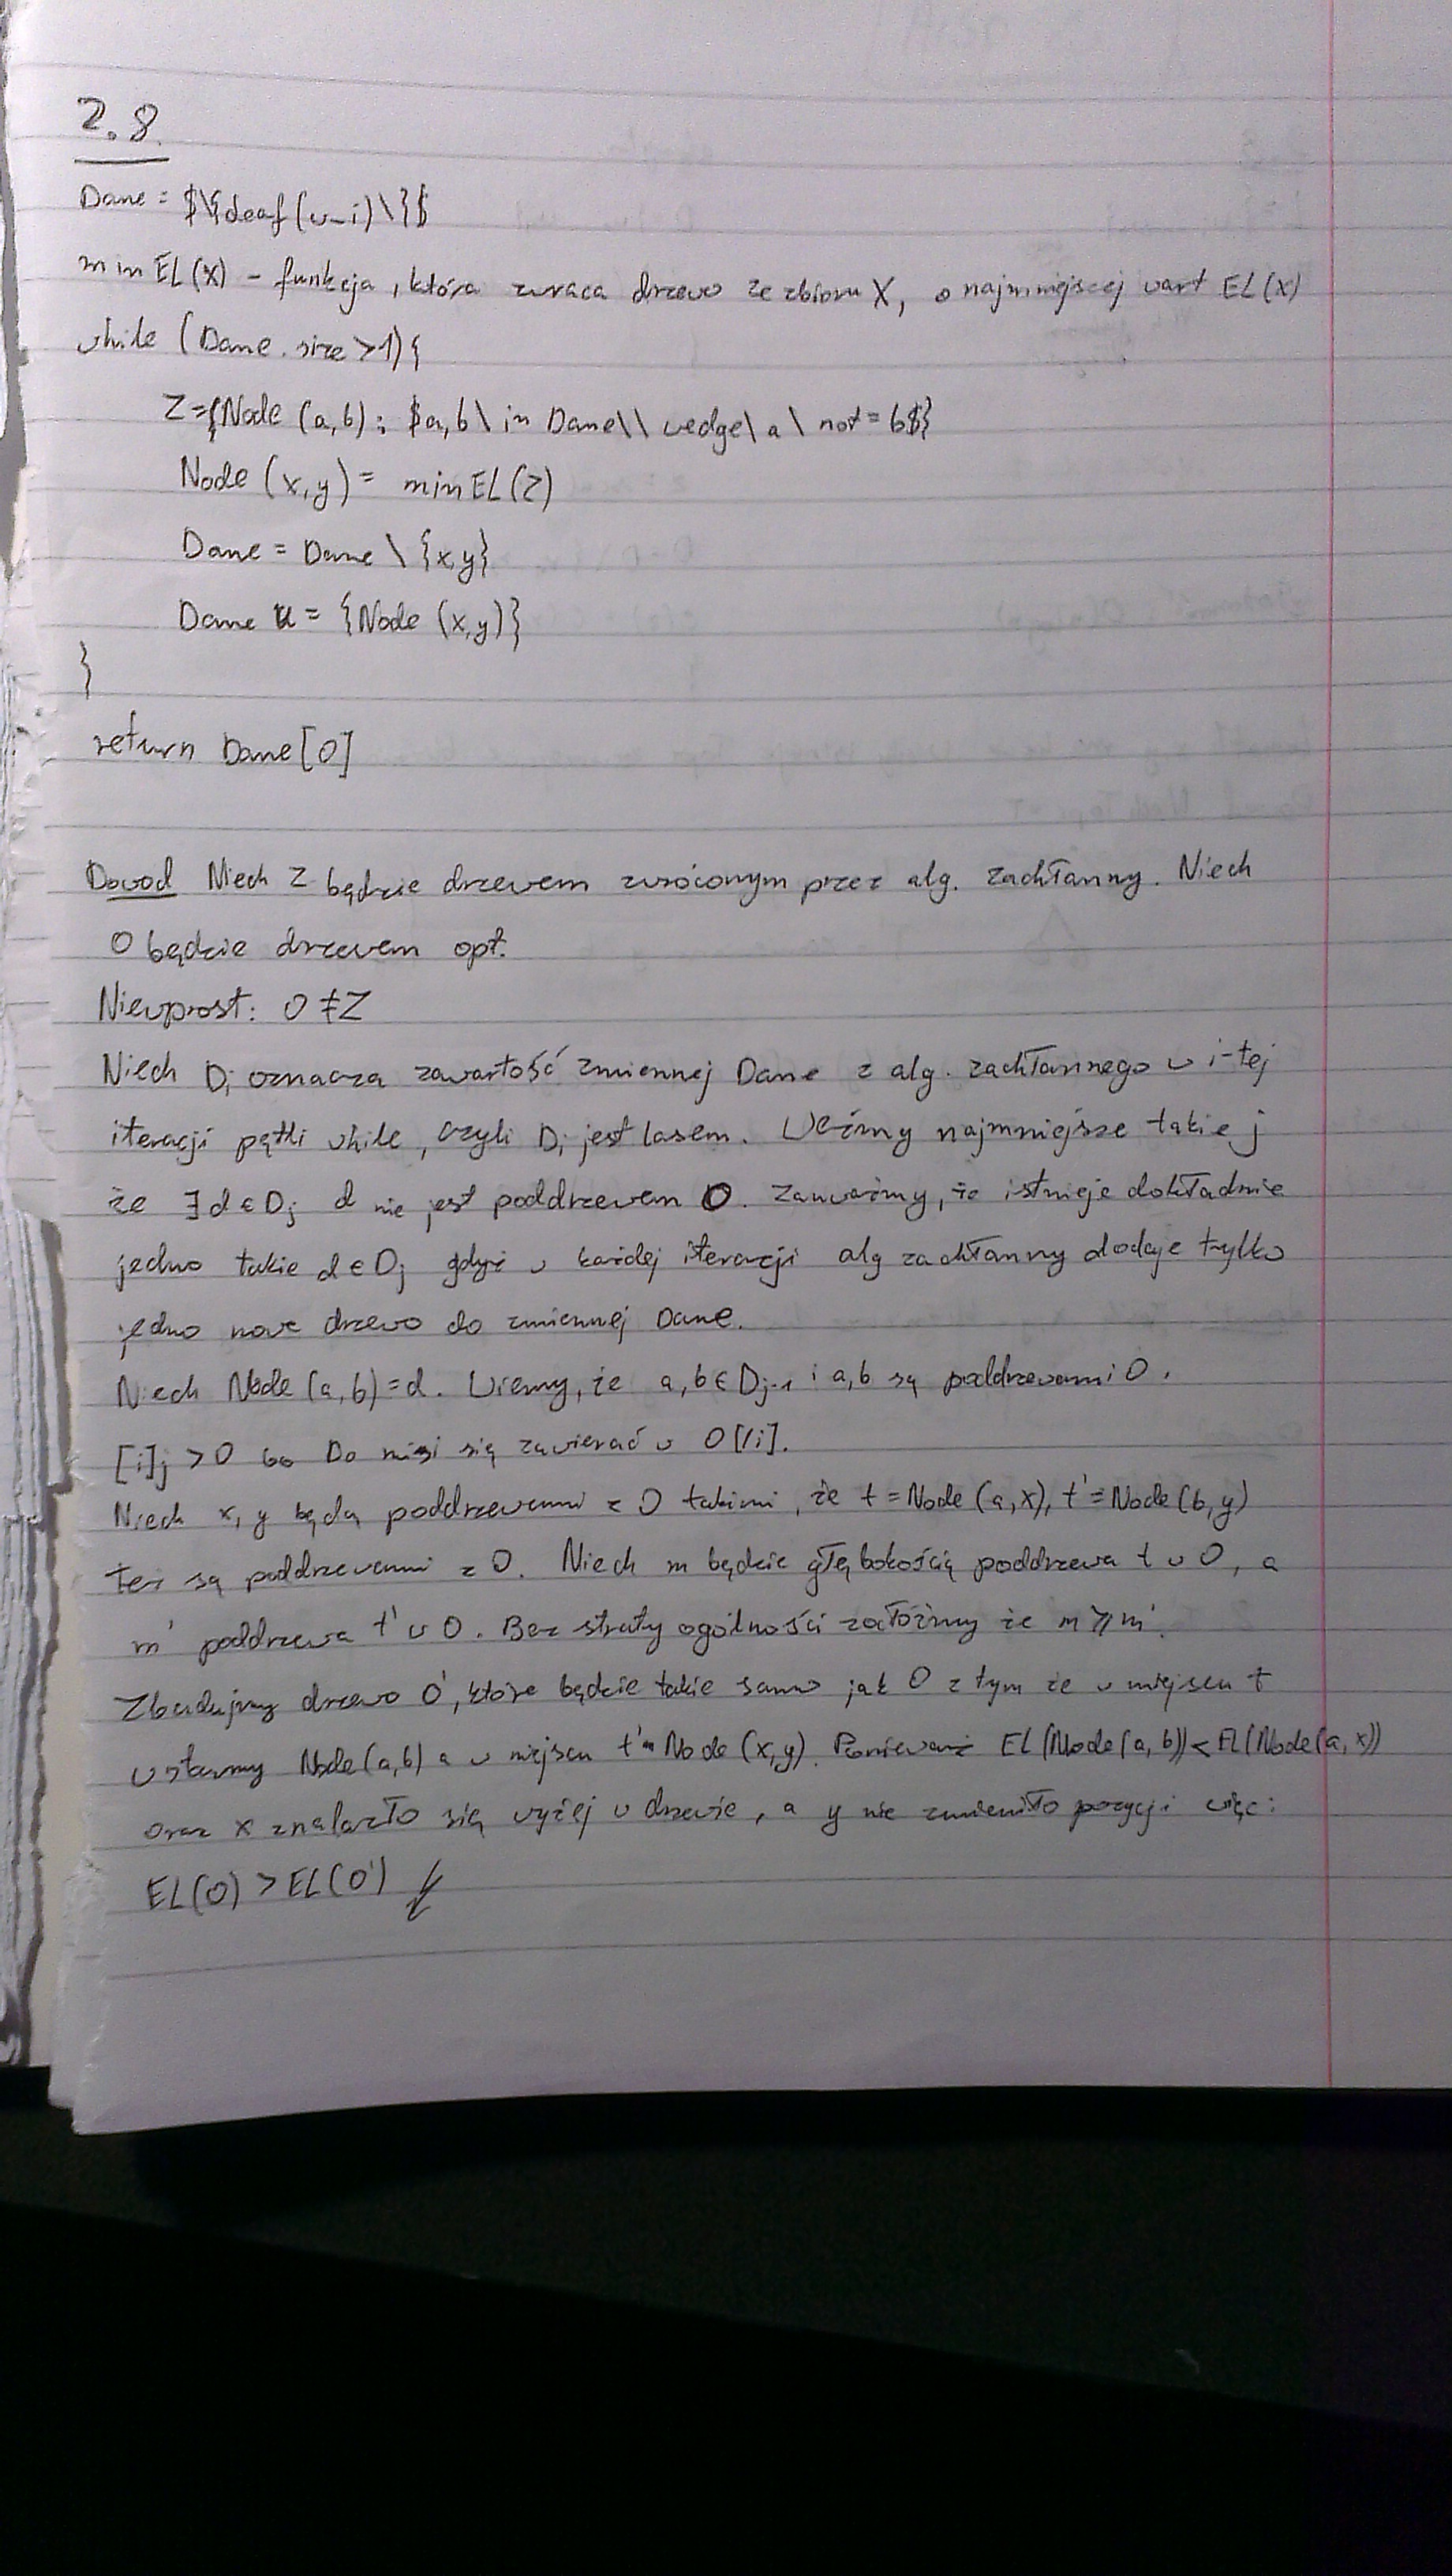 2.8.
Dane = $\{deaf(v_i)\}$
min EL(X) - funkcja, która zwraca drzewo ze zbioru X, o najmniejszej wart EL(x)
while (Dane.size>1){
Z={Node (a,b): $a,b\in Dane\\wedge\a\not=b$}
Node (x,y) = min EL(Z)
Dane = Dane \ {x,y}
Dane u= {Node (x,y)}
}
return Dane[0]
Dowod Niech Z będzie drzewem zwróconym przez alg. zachłanny. Niech
O będzie drzewem opt.
Niewprost: O ≠ Z
Niech Di oznacza zawartość zmiennej Dane z alg. zachłannego w i-tej
iteracji pętli while, czyli Di jest lasem. Weźmy najmniejsze takie j
że ∃d∈Dj d nie jest poddrzewem O. Zauważmy, że istnieje dokładnie
jedno takie d∈Dj gdyż w każdej iteracji alg zachłanny dodaje tylko
jedno nowe drzewo do zmiennej Dane.
Niech Node (a,b)=d. Wiemy, że a,b∈Dj-1 i a,b są poddrzewami O.
[i]j >0 bo Do musi się zawierać w O[/i].
Niech x, y będą poddrzewami z O takimi, że t=Node (a,x), t'=Node(b,y)
też są poddrzewami z O. Niech m będzie głębokością poddrzewa t w O, a
m' poddrzewa t' w O. Bez straty ogólności załóżmy że m ≥ m'.
Zbudujmy drzewo O', które będzie takie samo jak O z tym że w miejscu t
wstawmy Node(a,b) a w miejscu t' Node (x,y). Ponieważ EL(Node(a,b)) < EL(Node(a,x))
oraz x znalazło się wyżej w drzewie, a y nie zmieniło pozycji więc:
EL(O) > EL(O')